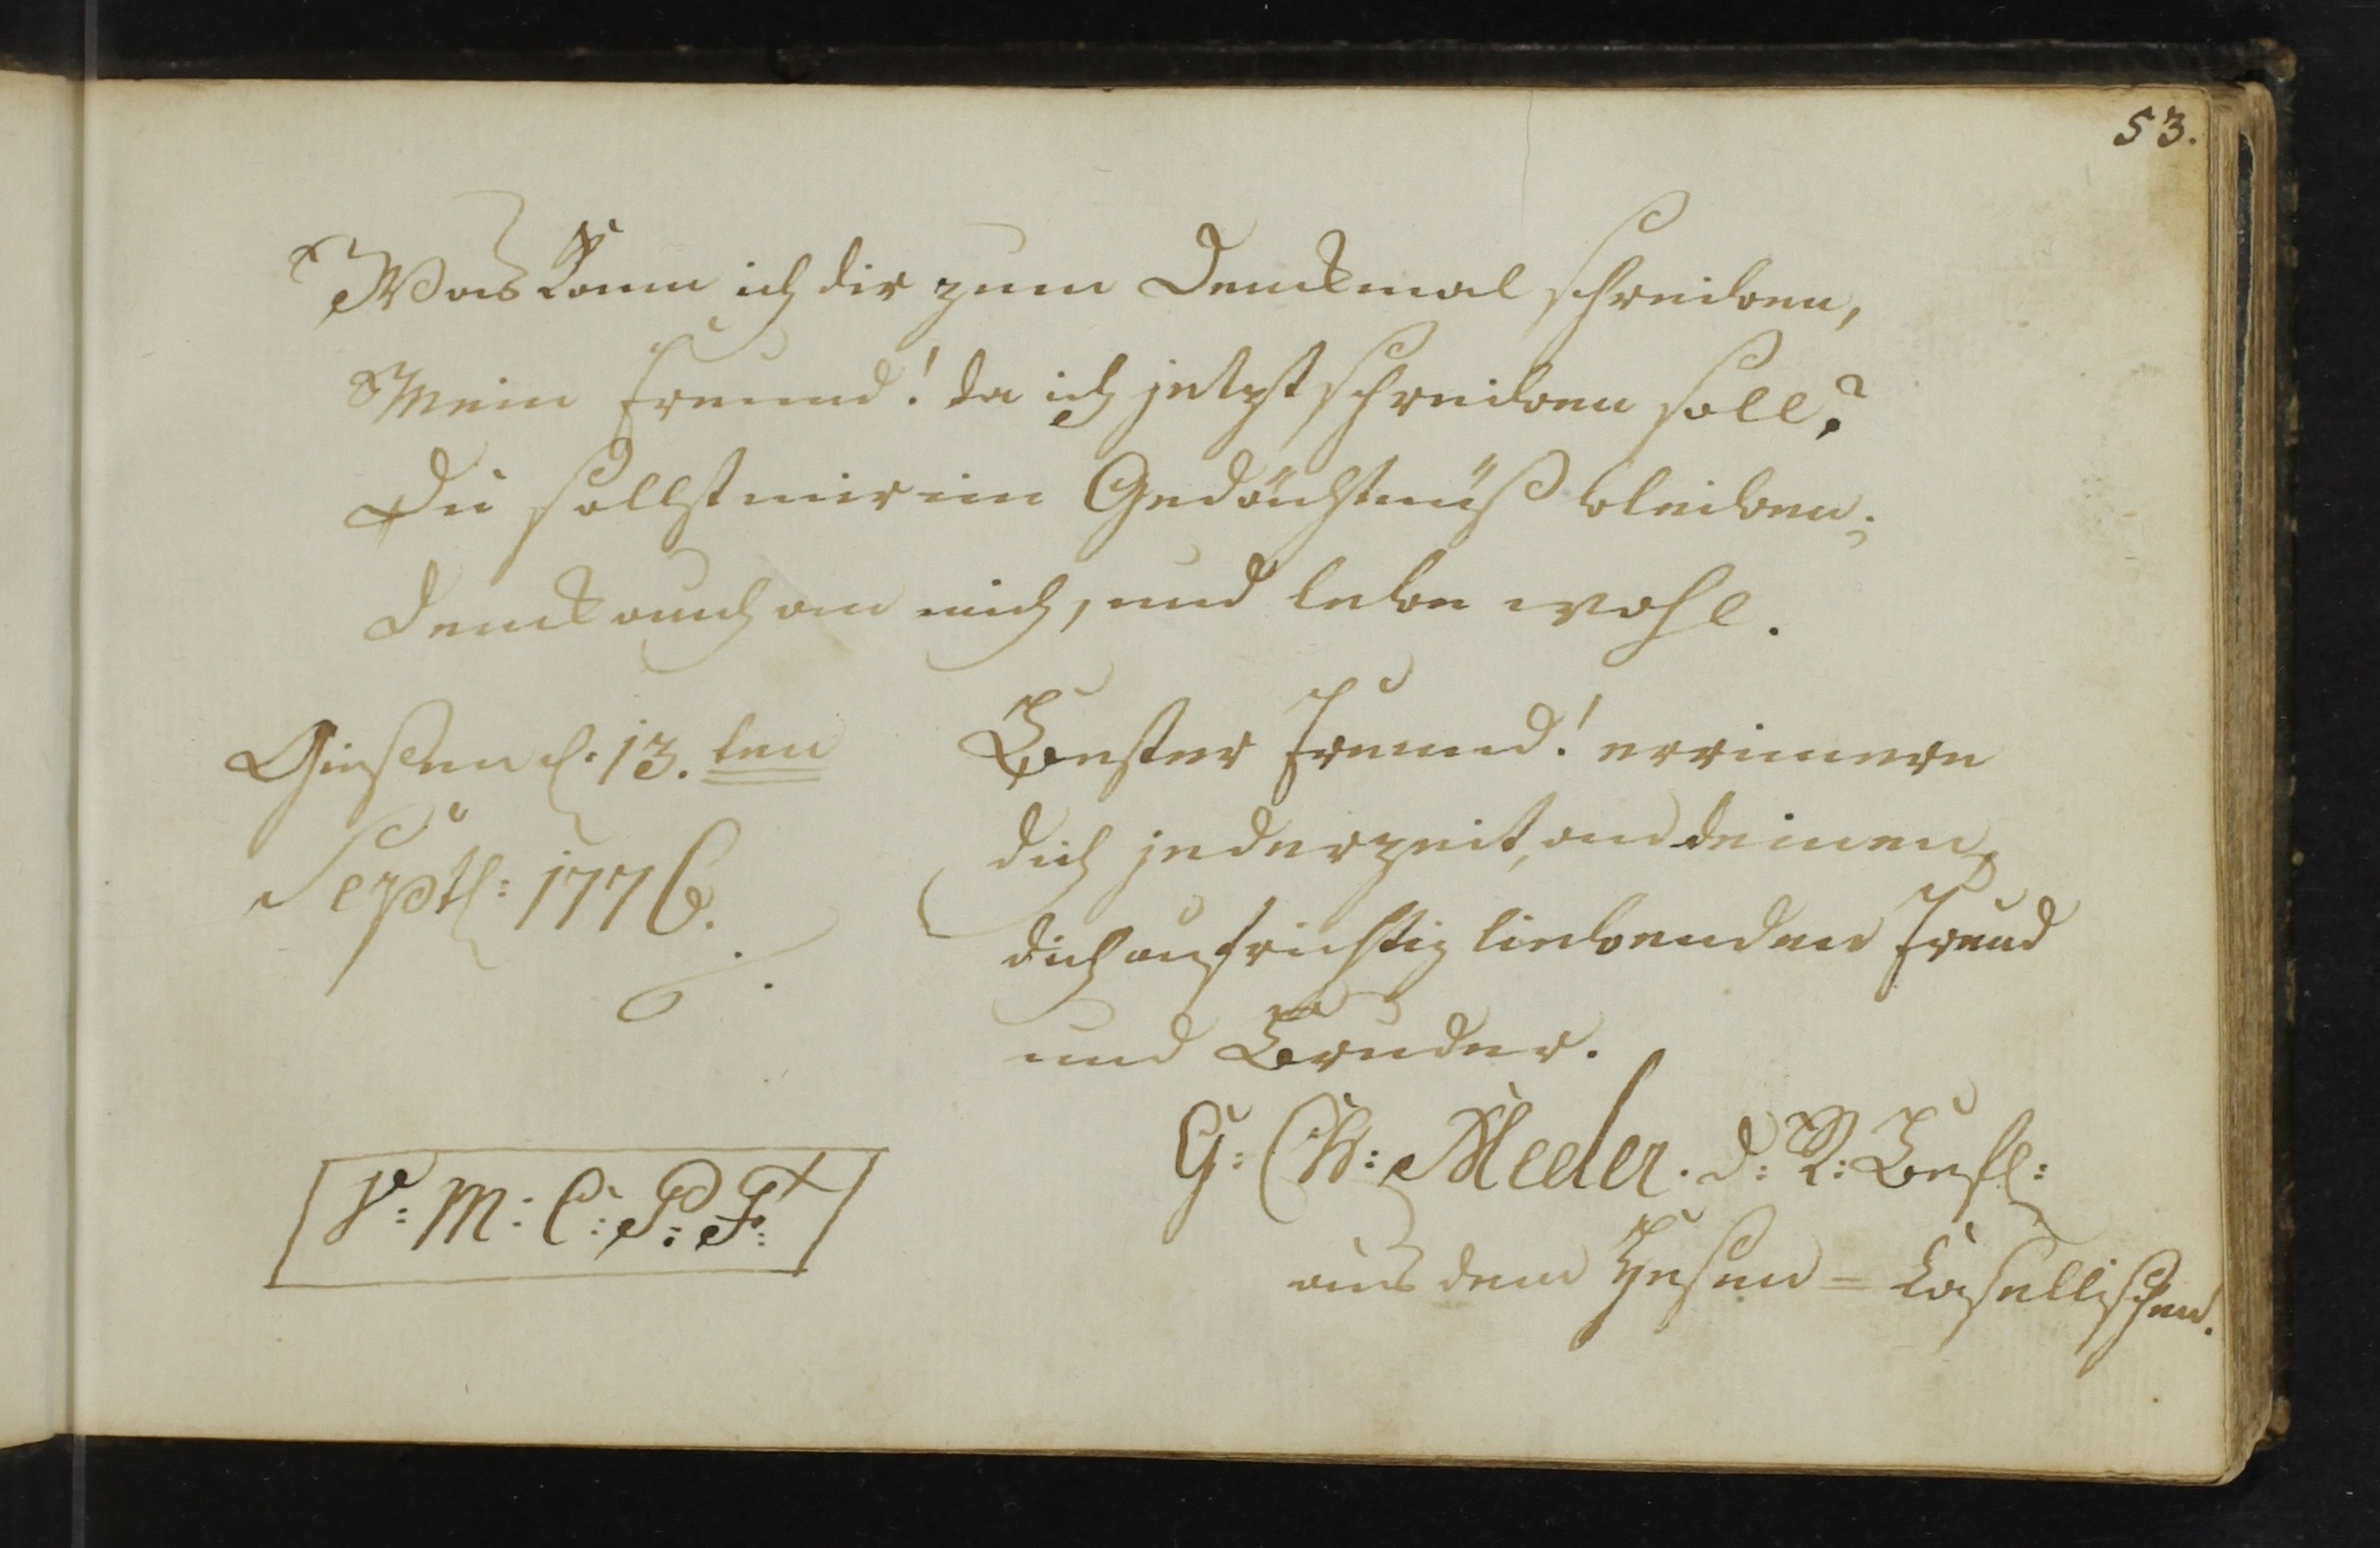 53.
Was kann ich dir zum Denckmal schreiben,
Mein Freund! da ich jetzst schreiben soll?
Du sollst mir im Gedächtnüß bleiben;
Denck auch an mich, und lebe wohl.
Giesen d. 13. ten
Septb: 1776.
Bester Freund! errinnere
dich jederzeit, an deinen,
dich aufrichtig liebenden Freud
und Bruder.
G: W: Meder. d: R: Befl:
aus dem Hesen = Casellischen.
V: M: C: P: F: